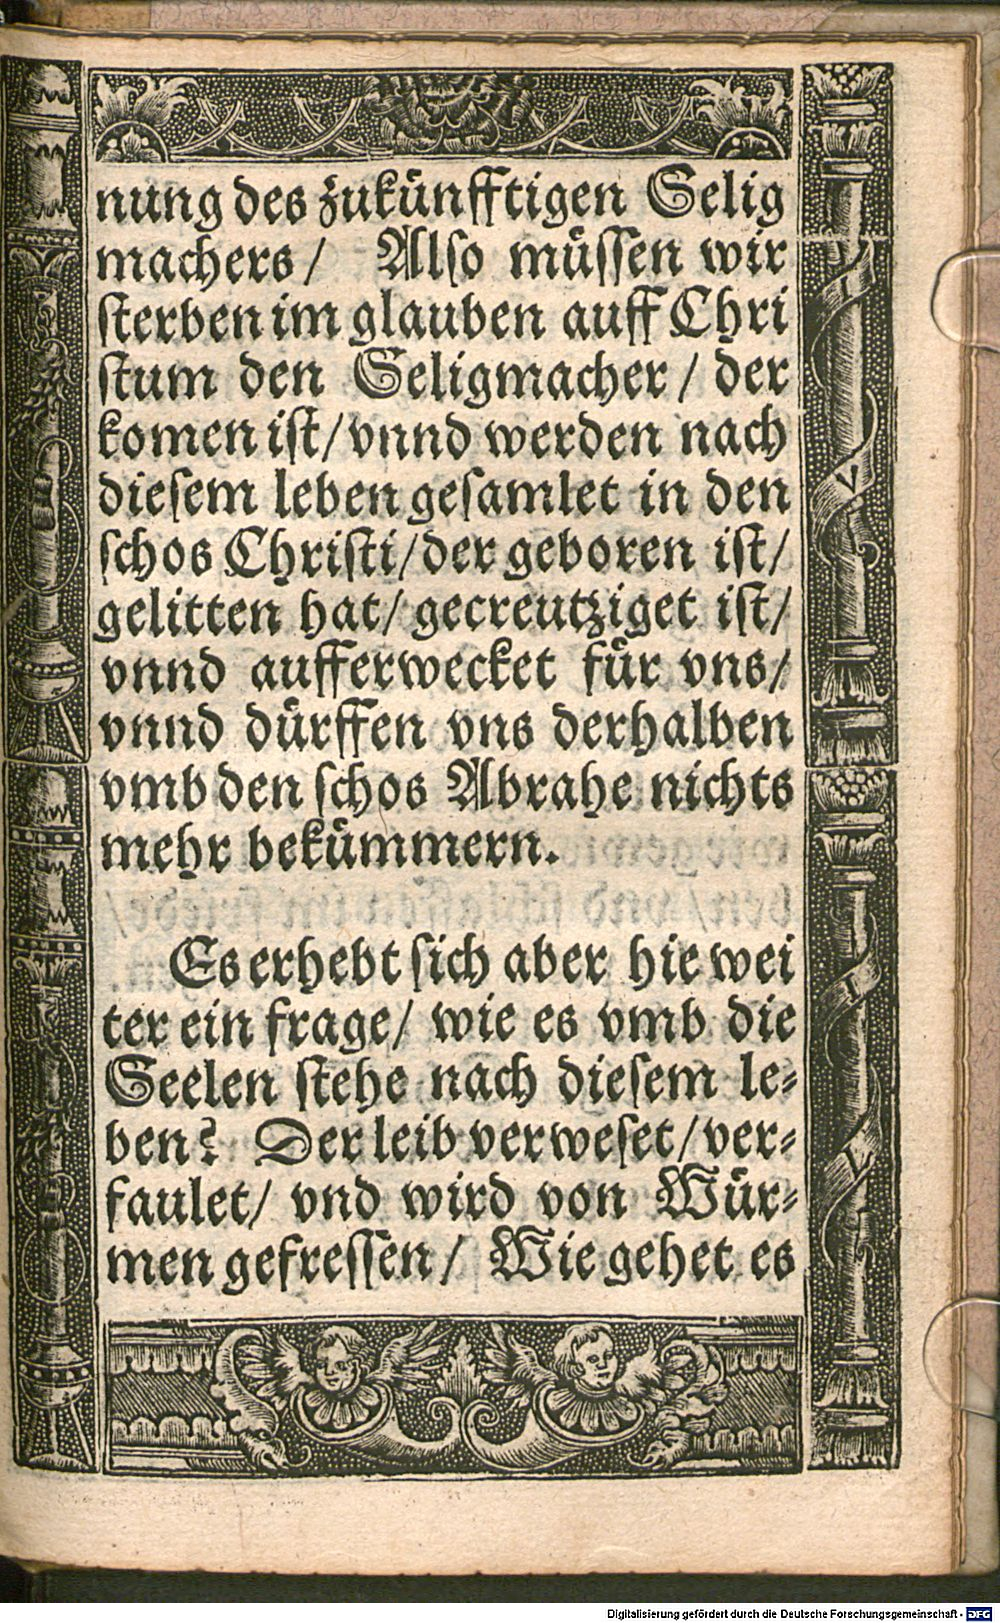 nung des zukünfftigen Selig
machers / Also müssen wir
sterben im glauben auff Chri
stum den Seligmacher / der
komen ist / vnnd werden nach
diesem leben gesamlet in den
schos Christi / der geboren ist /
gelitten hat / gecreutziget ist /
vnnd aufferwecket für vns /
vnnd dürffen vns derhalben
vmb den schos Abrahe nichts
mehr bekümmern.
Es erhebt sich aber hie wei
ter ein frage / wie es vmb die
Seelen stehe nach diesem le-
ben? Der leib verweset / ver-
faulet / vnd wird von Wür-
men gefressen / Wie gehet es
Digitalisierung gefördert durch die Deutsche Forschungsgemeinschaft - DFG